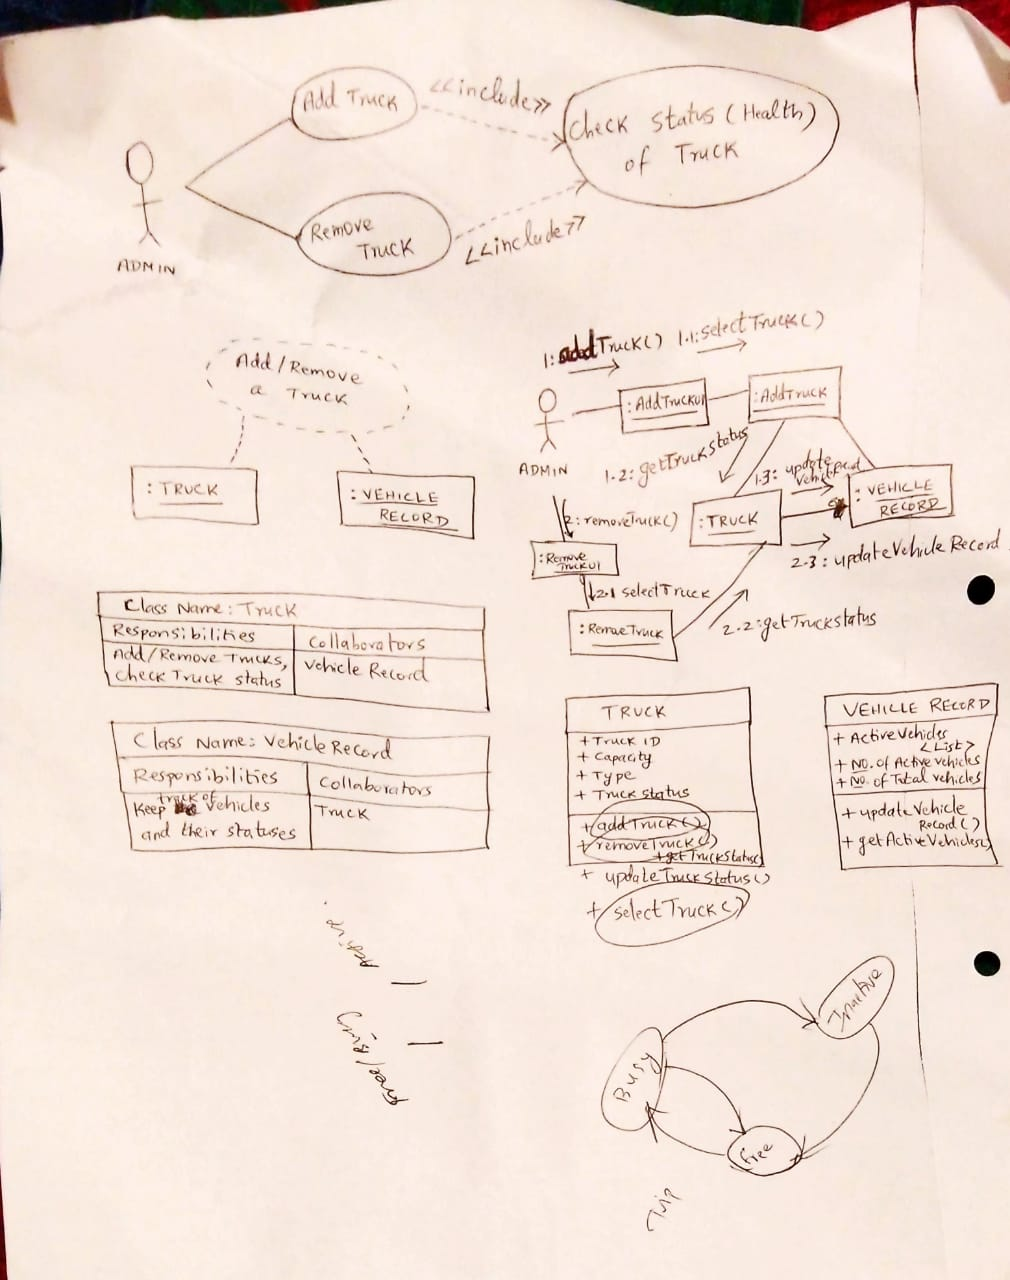 Add Truck
<<include>>
Check Status (Health)
of Truck
Remove
Truck
<<include>>
ADMIN
Add/Remove
a Truck
: TRUCK
: VEHICLE
RECORD
1: addTruck()
1.1: selectTruck()
ADMIN
: AddTruckUI
: AddTruck
1.2: getTruckStatus
1.3: update
: VEHICLE
RECORD
2: removeTruck()
: TRUCK
2.3: updateVehicle Record
: Remove
TruckUI
2.1 selectTruck
2.2: getTruckstatus
: RemoveTruck
Class Name: Truck
Responsibilities
Collaborators
Add/Remove Trucks,
check Truck status
Vehicle Record
Class Name: Vehicle Record
Responsibilities
Collaborators
Keep track of vehicles
and their statuses
Truck
TRUCK
+ Truck ID
+ Capacity
+ Type
+ Truck status
+ addTruck()
+ removeTruck()
+ getTruckStatus()
+ updateTruckStatus()
+ selectTruck()
VEHICLE RECORD
+ ActiveVehicles
<List>
+ NO. of Active vehicles
+ NO. of Total vehicles
+ updateVehicle
Record()
+ getActiveVehicles()
Inactive
Busy
free
Trip
free/Busy